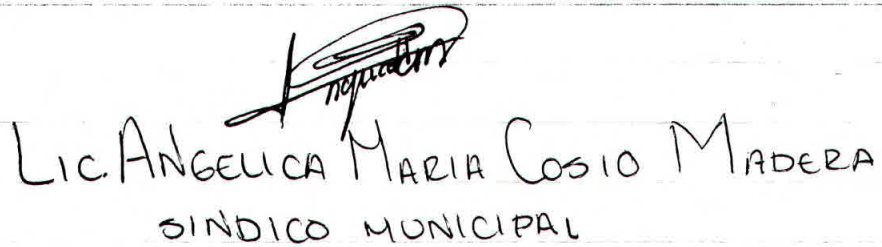 LIC. ANGELICA MARIA COSIO MADERA
SINDICO MUNICIPAL